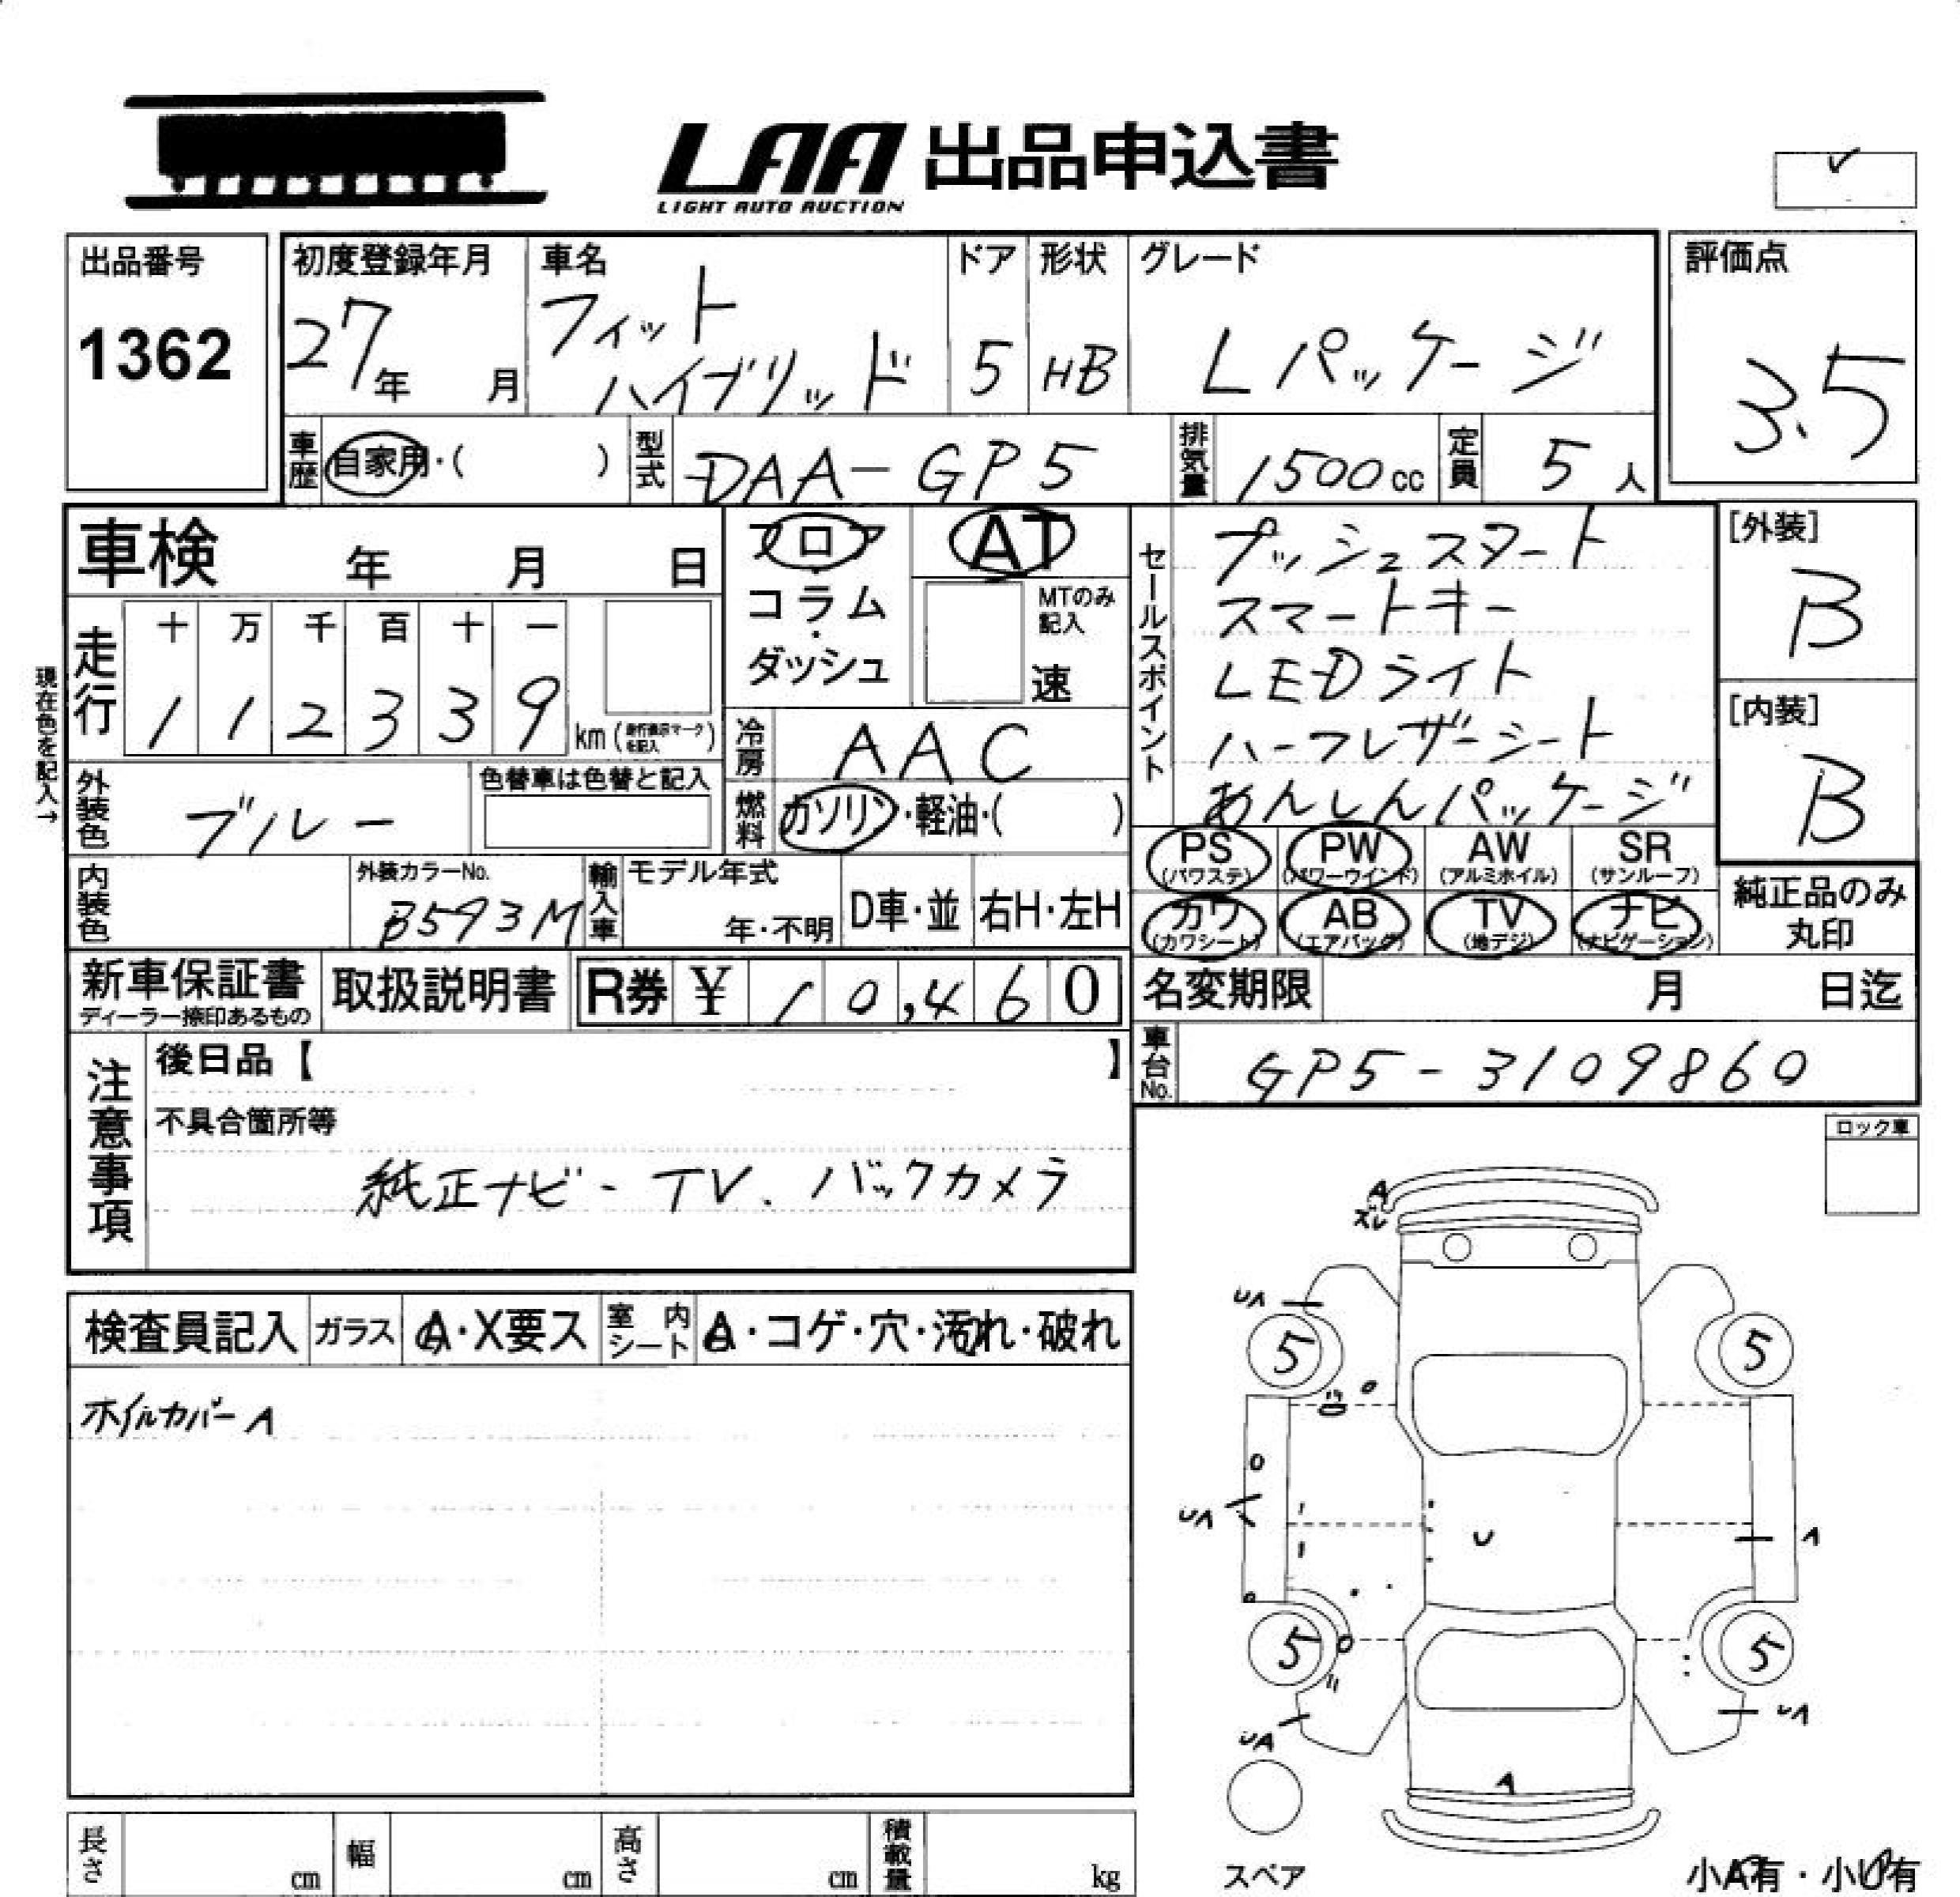 LAA 出品申込書
LIGHT AUTO AUCTION
出品番号
1362
初度登録年月
27年 月
車名
フィット
ハイブリッド
ドア
5
形状
HB
グレード
Lパッケージ
評価点
3.5
車歴
自家用・( )
型式
DAA-GP5
排気量
1500cc
定員
5人
車検 年 月 日
フロア
・
コラム
・
ダッシュ
AT
MTのみ
記入
速
セールスポイント
プッシュスタート
スマートキー
LEDライト
ハーフレザーシート
あんしんパッケージ
[外装]
B
[内装]
B
現在色を記入→
走行
十 万 千 百 十 一
1 1 2 3 3 9
km(走行表示マークを記入)
冷房
AAC
外装色
ブルー
色替車は色替と記入
燃料
ガソリン・軽油・( )
PS
(パワステ)
PW
(パワーウインド)
AW
(アルミホイル)
SR
(サンルーフ)
カワ
(カワシート)
AB
(エアバッグ)
TV
(地デジ)
ナビ
(ナビゲーション)
純正品のみ
丸印
内装色
外装カラーNo.
B593M
輸入車
モデル年式
年・不明
D車・並
右H・左H
新車保証書
ディーラー捺印あるもの
取扱説明書
R券 ¥ 10,460
名変期限 月 日迄
車台No.
GP5-3109860
注意事項
後日品【 】
不具合箇所等
純正ナビ-TV.バックカメラ
ロック車
検査員記入
ガラス
A・X要ス
室内シート
A・コゲ・穴・汚れ・破れ
ホイルカバーA
A
ズレ
UA
5
5
UA
U
A
5
5
UA
UA
A
スペア
小A有・小U有
長さ cm
幅 cm
高さ cm
積載量 kg